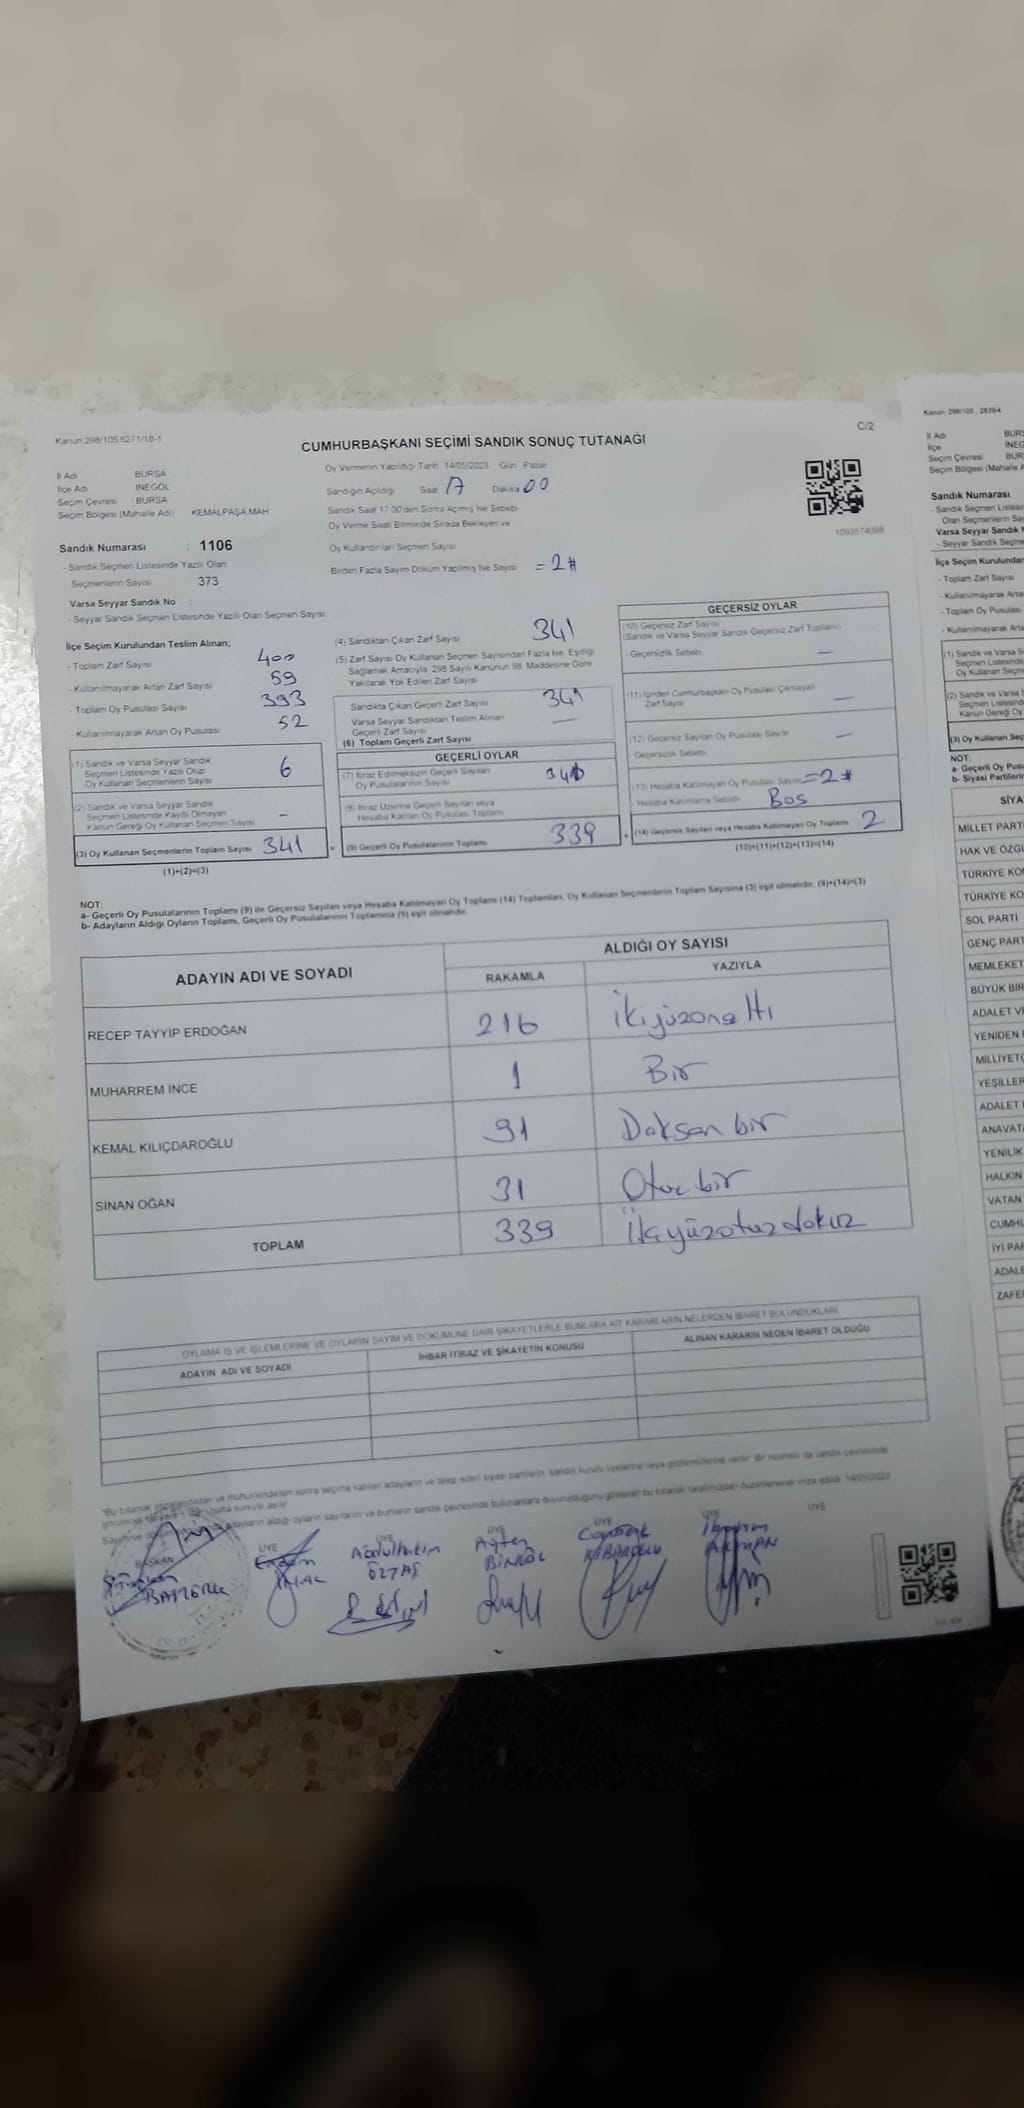 Kanun:298/105;6271/18-1
C/2
CUMHURBAŞKANI SEÇİMİ SANDIK SONUÇ TUTANAĞI
İl Adı BURSA
İlçe Adı INEGÖL
Seçim Çevresi : BURSA
Seçim Bölgesi (Mahalle Adı) KEMALPAŞA MAH
Oy Vermenin Yapıldığı Tarih 14/05/2023 Gün Pazar
Sandığın Açıldığı Saat 17 Dakika 00
Sandık Saat 17:00'den Sonra Açımış İse Sebebi
Oy Verme Saati Bitiminde Sırada Bekleyen ve
Oy Kullandırılan Seçmen Sayısı
Birden Fazla Sayım Döküm Yapılmış İse Sayısı = 2 #
1093574098
Sandık Numarası : 1106
- Sandık Seçmen Listesinde Yazılı Olan
Seçmenlerin Sayısı 373
Varsa Seyyar Sandık No :
- Seyyar Sandık Seçmen Listesinde Yazılı Olan Seçmen Sayısı
İlçe Seçim Kurulundan Teslim Alınan;
- Toplam Zarf Sayısı 400
- Kullanılmayarak Artan Zarf Sayısı 59
- Toplam Oy Pusulası Sayısı 393
- Kullanılmayarak Artan Oy Pusulası 52
(1) Sandık ve Varsa Seyyar Sandık
Seçmen Listesinde Yazılı Olup
Oy Kullanan Seçmenlerin Sayısı 6
(2) Sandık ve Varsa Seyyar Sandık
Seçmen Listesinde Kaydı Olmayan
Kanun Gereği Oy Kullanan Seçmen Sayısı -
(3) Oy Kullanan Seçmenlerin Toplam Sayısı 341
(1)+(2)=(3)
(4) Sandıktan Çıkan Zarf Sayısı 341
(5) Zarf Sayısı Oy Kullanan Seçmen Sayısından Fazla İse, Eşitliği
Sağlamak Amacıyla 298 Sayılı Kanunun 98. Maddesine Göre
Yakılarak Yok Edilen Zarf Sayısı
Sandıkta Çıkan Geçerli Zarf Sayısı 341
Varsa Seyyar Sandıktan Teslim Alınan
Geçerli Zarf Sayısı —
(6) Toplam Geçerli Zarf Sayısı
GEÇERLİ OYLAR
(7) İtiraz Edilmeksizin Geçerli Sayılan
Oy Pusulalarının Sayısı
(8) İtiraz Üzerine Geçerli Sayılan veya
Hesaba Katılan Oy Pusulası Toplamı
(9) Geçerli Oy Pusulalarının Toplamı 339
GEÇERSİZ OYLAR
(10) Geçersiz Zarf Sayısı
(Sandık ve Varsa Seyyar Sandık Geçersiz Zarf Toplamı)
- Geçersizlik Sebebi —
(11) İçinden Cumhurbaşkanı Oy Pusulası Çıkmayan
Zarf Sayısı —
(12) Geçersiz Sayılan Oy Pusulası Sayısı —
- Geçersizlik Sebebi
(13) Hesaba Katılmayan Oy Pusulası Sayısı = 2 #
- Hesaba Katılmama Sebebi Bos
(14) Geçersiz Sayılan veya Hesaba Katılmayan Oy Toplamı 2
(10)+(11)+(12)+(13)=(14)
NOT:
a- Geçerli Oy Pusulalarının Toplamı (9) ile Geçersiz Sayılan veya Hesaba Katılmayan Oy Toplamı (14) Toplamları, Oy Kullanan Seçmenlerin Toplam Sayısına (3) eşit olmalıdır. (9)+(14)=(3)
b- Adayların Aldığı Oyların Toplamı, Geçerli Oy Pusulalarının Toplamına (9) eşit olmalıdır.
ADAYIN ADI VE SOYADI
ALDIĞI OY SAYISI
RAKAMLA YAZIYLA
RECEP TAYYİP ERDOĞAN 216 İkiyüzonaltı
MUHARREM İNCE 1 Bir
KEMAL KILIÇDAROĞLU 91 Doksan bir
SİNAN OĞAN 31 Otuz bir
TOPLAM 339 Üçyüzotuzdokuz
OYLAMA İŞ VE İŞLEMLERİNE VE OYLARIN SAYIM VE DÖKÜMÜNE DAİR ŞİKAYETLERLE BUNLARA AİT KARARLARIN NELERDEN İBARET BULUNDUKLARI
ADAYIN ADI VE SOYADI
İHBAR İTİRAZ VE ŞİKAYETİN KONUSU
ALINAN KARARIN NEDEN İBARET OLDUĞU
BAŞKAN
ÜYE ÜYE ÜYE ÜYE ÜYE ÜYE
Abdulhakim ÖZTAŞ
Ayten BİNGÖL
Kanun: 298/105 , 2839/4
İl Adı BURS
İlçe İNEG
Seçim Çevresi BUR
Seçim Bölgesi (Mahalle A
Sandık Numarası
- Sandık Seçmen Listes
Olan Seçmenlerin Sa
Varsa Seyyar Sandık
- Seyyar Sandık Seçme
İlçe Seçim Kurulundan
- Toplam Zarf Sayısı
- Kullanılmayarak Arta
- Toplam Oy Pusulası
- Kullanılmayarak Arta
(1) Sandık ve Varsa S
Seçmen Listesinde
Oy Kullanan Seçm
(2) Sandık ve Varsa S
Kanun Gereği Oy
(3) Oy Kullanan Seç
NOT:
a- Geçerli Oy Pusu
b- Siyasi Partileri
SİYA
MİLLET PARTİ
HAK VE ÖZGÜ
TÜRKİYE KOM
TÜRKİYE KO
SOL PARTİ
GENÇ PART
MEMLEKET
BÜYÜK BİR
ADALET VE
YENİDEN
MİLLİYETÇ
YEŞİLLER
ADALET
ANAVATA
YENİLİK
HALKIN
VATAN
CUMHU
İYİ PAR
ADALE
ZAFER